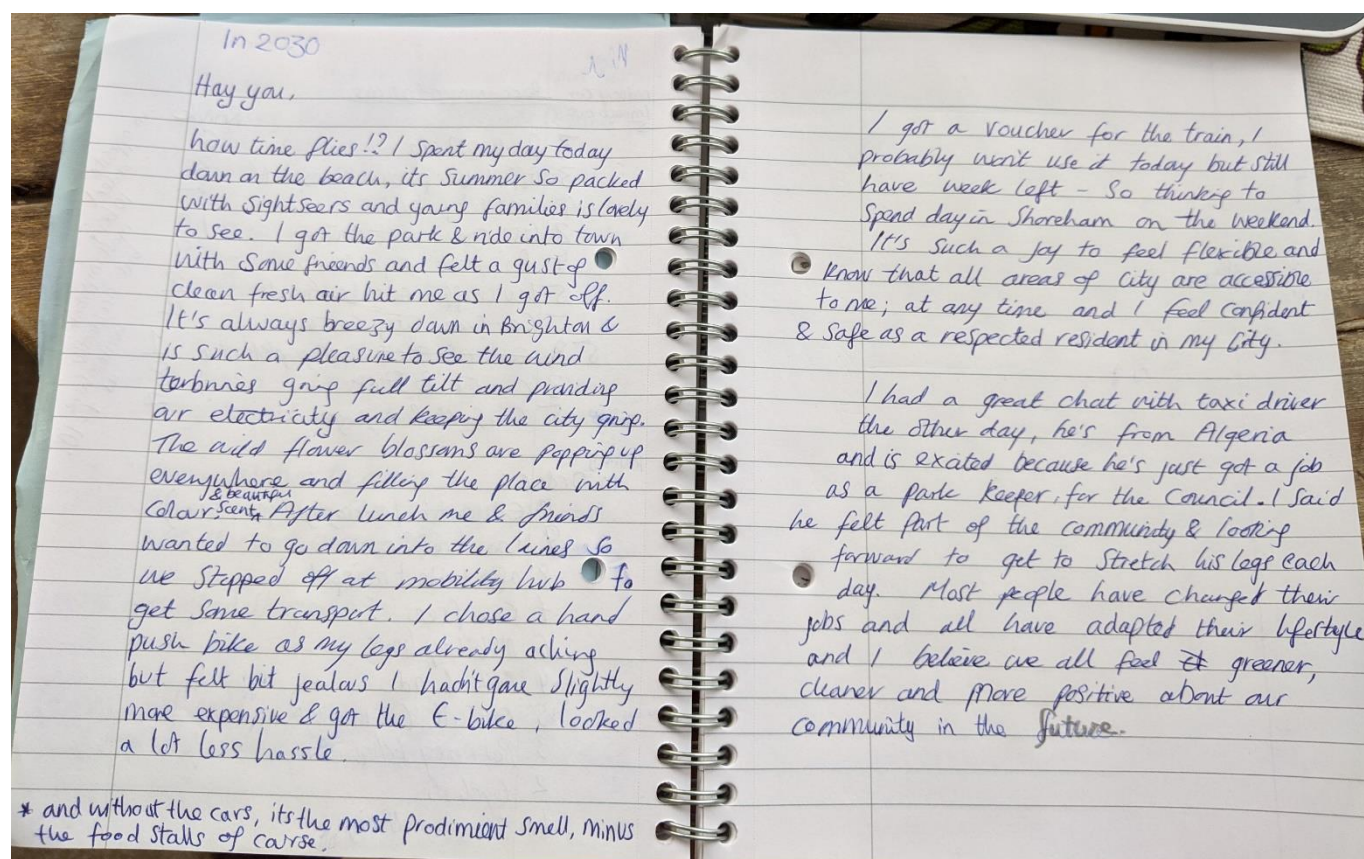 In 2030
Hay you,
how time flies!? I spent my day today
down on the beach, its Summer so packed
with sightseers and young families is lovely
to see. I got the park & ride into town
with some friends and felt a gust of
clean fresh air hit me as I got off.
It's always breezy down in Brighton &
is such a pleasure to see the wind
terbunies going full tilt and providing
our electricity and keeping the city going.
The wild flower blossoms are popping up
everywhere and filling the place with
& beautiful
colour, scent* After lunch me & friends
wanted to go down into the laines so
we stepped off at mobility hub to
get some transport. I chose a hand
push bike as my legs already aching
but felt bit jealous I hadn't gone slightly
more expensive & got the E-bike, looked
a lot less hassle.
* and without the cars, its the most prodimient smell, minus
the food stalls of course.
I got a voucher for the train, I
probably won't use it today but still
have week left - So thinking to
spend day in Shoreham on the weekend.
It's such a joy to feel flexible and
know that all areas of city are accessible
to me; at any time and I feel confident
& safe as a respected resident in my City.
I had a great chat with taxi driver
the other day, he's from Algeria
and is exated because he's just got a job
as a park keeper, for the Council. I said
he felt part of the community & looking
forward to get to stretch his legs each
day. Most people have changed their
jobs and all have adapted their lifestyle
and I believe we all feel greener,
cleaner and more positive about our
community in the future.